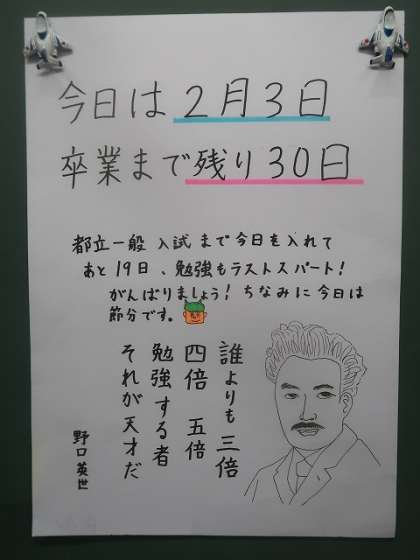 今日は2月3日
卒業まで残り30日
都立一般入試まで今日を入れて
あと19日、勉強もラストスパート!
がんばりましょう!ちなみに今日は
節分です。
誰よりも三倍
四倍 五倍
勉強する者
それが天才だ
野口英世